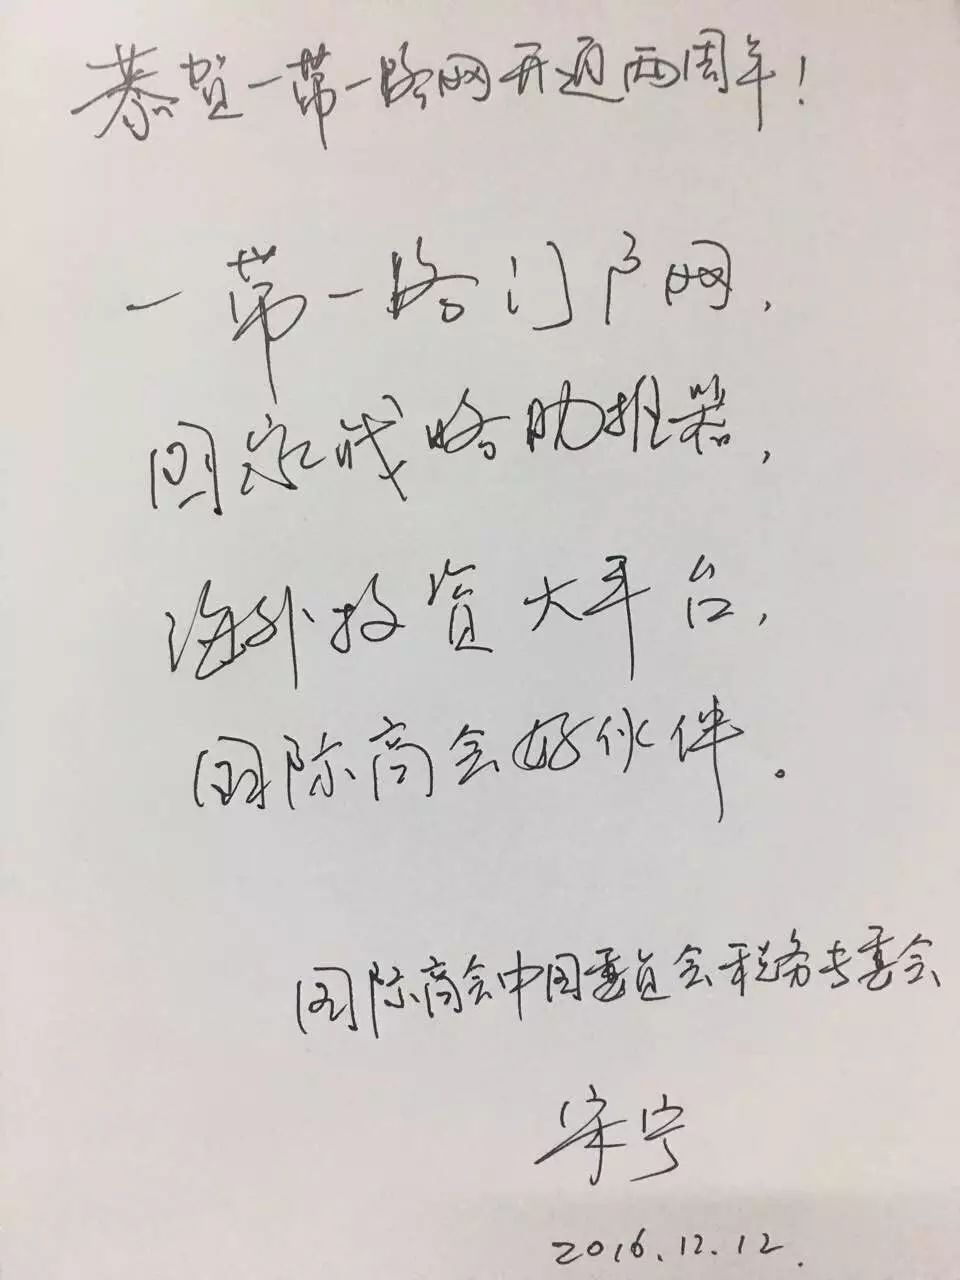 恭贺一带一路网开通两周年！
一带一路门户网，
国家战略助推器，
海外投资大平台，
国际商会好伙伴。
国际商会中国委员会税务专委会
宋宁
2016.12.12.